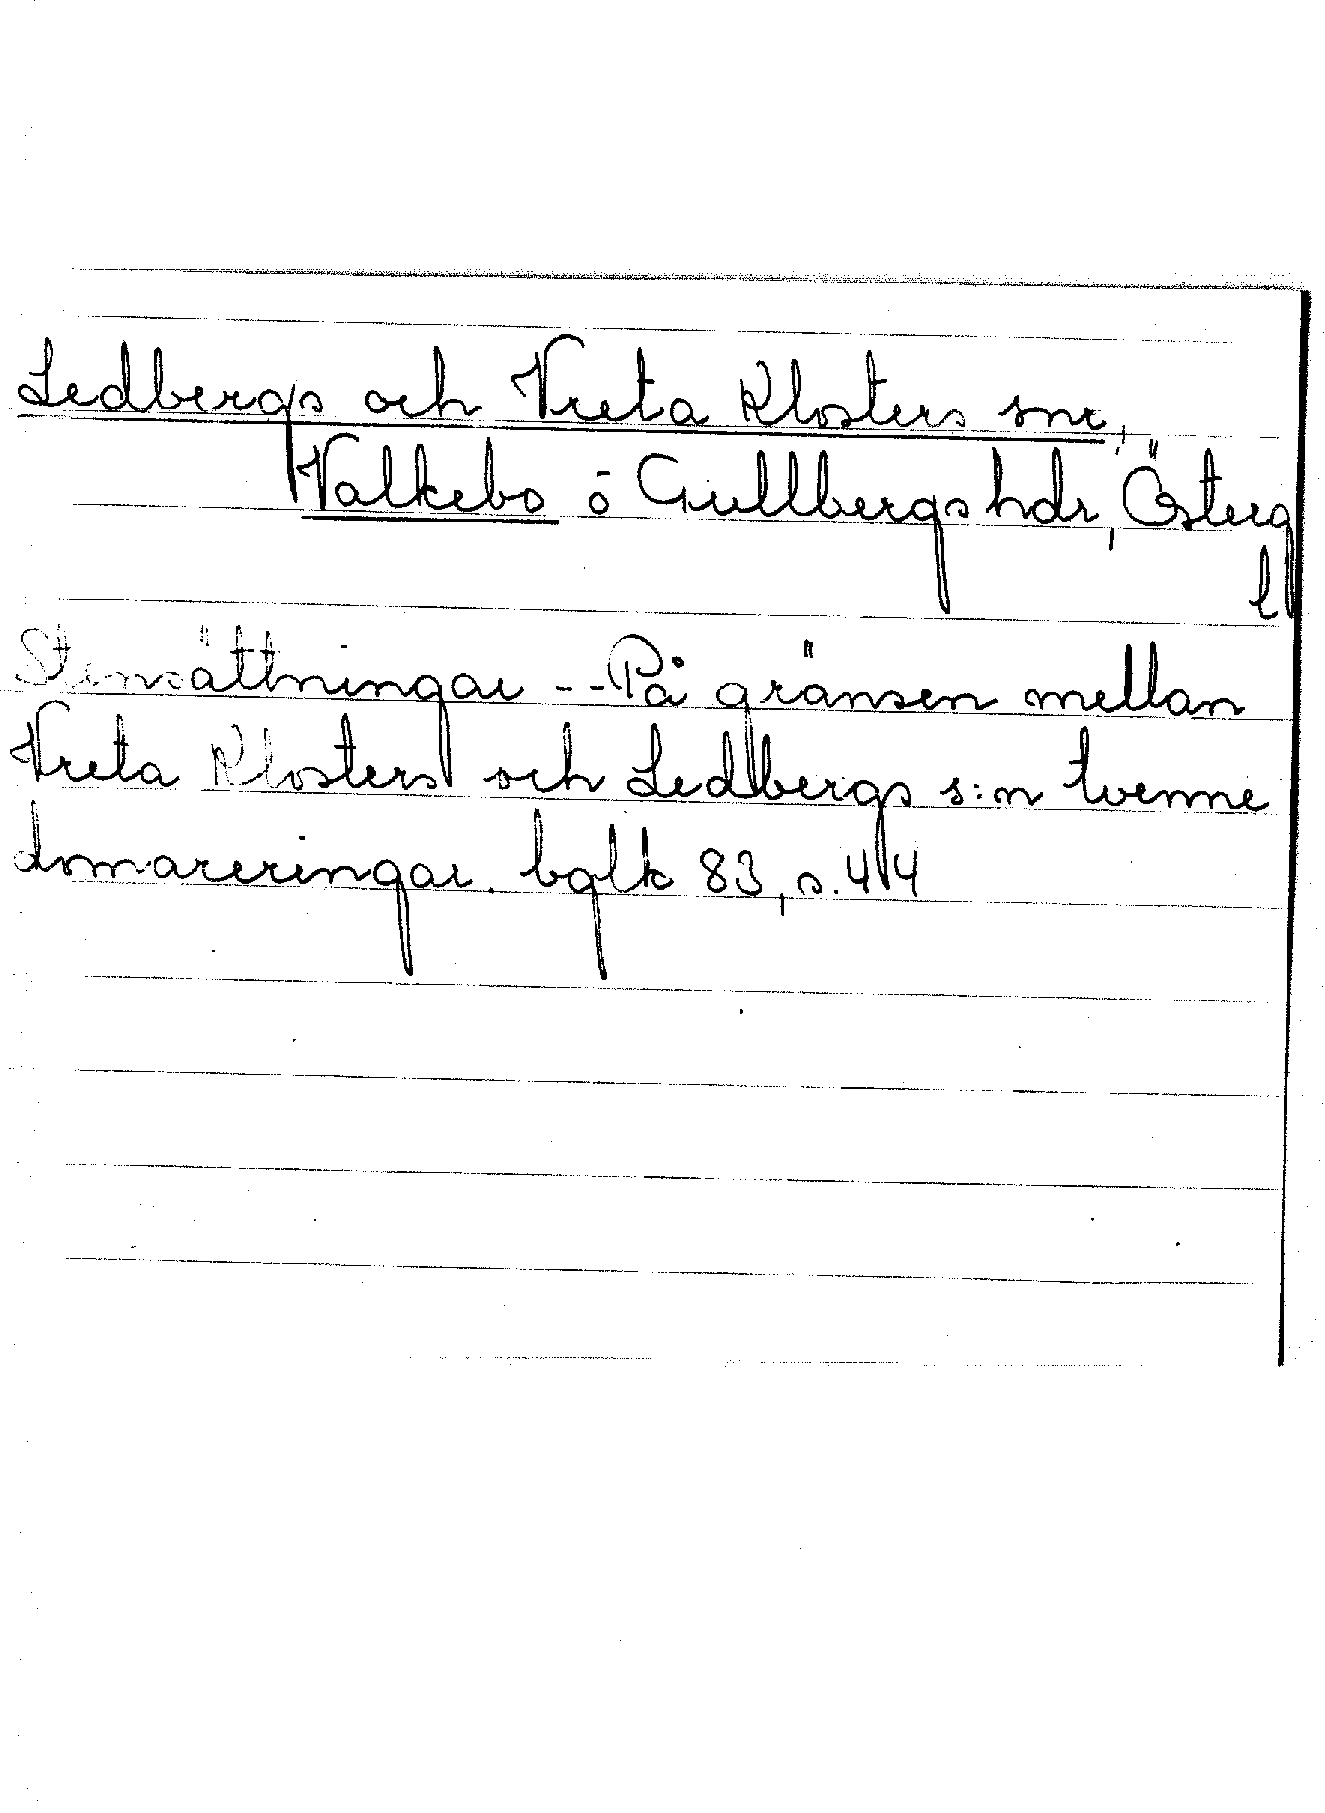 Ledbergs och Vreta Klosters snr,
Valkebo o Gullbergs hdr, Österg
l
Stensättningar -- På gränsen mellan
Vreta Klosters och Ledbergs s:n tvenne
domareringar. bglk 83, s. 414